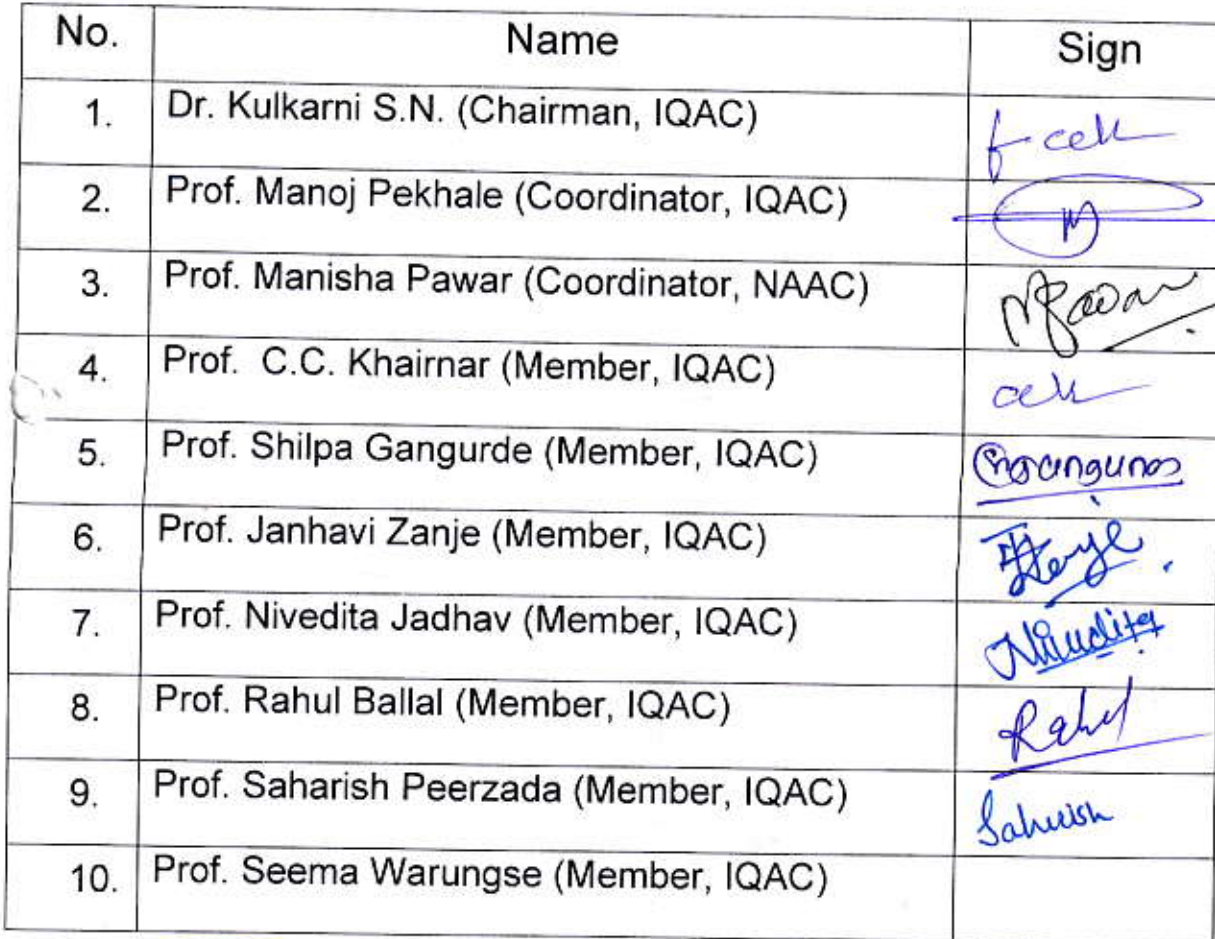 No. Name Sign
1. Dr. Kulkarni S.N. (Chairman, IQAC)
2. Prof. Manoj Pekhale (Coordinator, IQAC)
3. Prof. Manisha Pawar (Coordinator, NAAC)
4. Prof. C.C. Khairnar (Member, IQAC)
5. Prof. Shilpa Gangurde (Member, IQAC)
6. Prof. Janhavi Zanje (Member, IQAC)
7. Prof. Nivedita Jadhav (Member, IQAC)
8. Prof. Rahul Ballal (Member, IQAC) Rahul
9. Prof. Saharish Peerzada (Member, IQAC)
10. Prof. Seema Warungse (Member, IQAC)